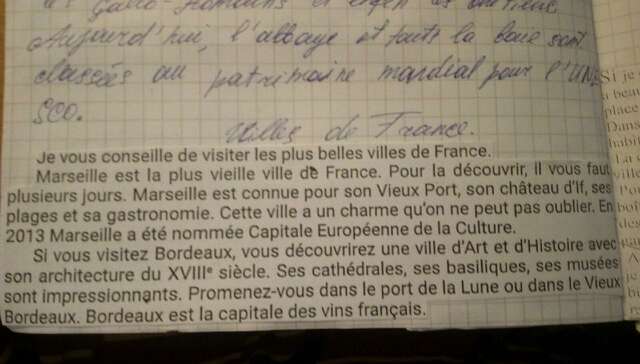 Gallo-Romains et
Aujourd'hui, l'abbaye et toute la baie sont
classées au patrimoine mondial pour l'UNE
SCO.
Villes de France.
Je vous conseille de visiter les plus belles villes de France.
Marseille est la plus vieille ville de France. Pour la découvrir, il vous faut
plusieurs jours. Marseille est connue pour son Vieux Port, son château d'If, ses
plages et sa gastronomie. Cette ville a un charme qu'on ne peut pas oublier. En
2013 Marseille a été nommée Capitale Européenne de la Culture.
Si vous visitez Bordeaux, vous découvrirez une ville d'Art et d'Histoire avec
son architecture du XVIIIᵉ siècle. Ses cathédrales, ses basiliques, ses musées
sont impressionnants. Promenez-vous dans le port de la Lune ou dans le Vieux
Bordeaux. Bordeaux est la capitale des vins français.
Si je
Dans